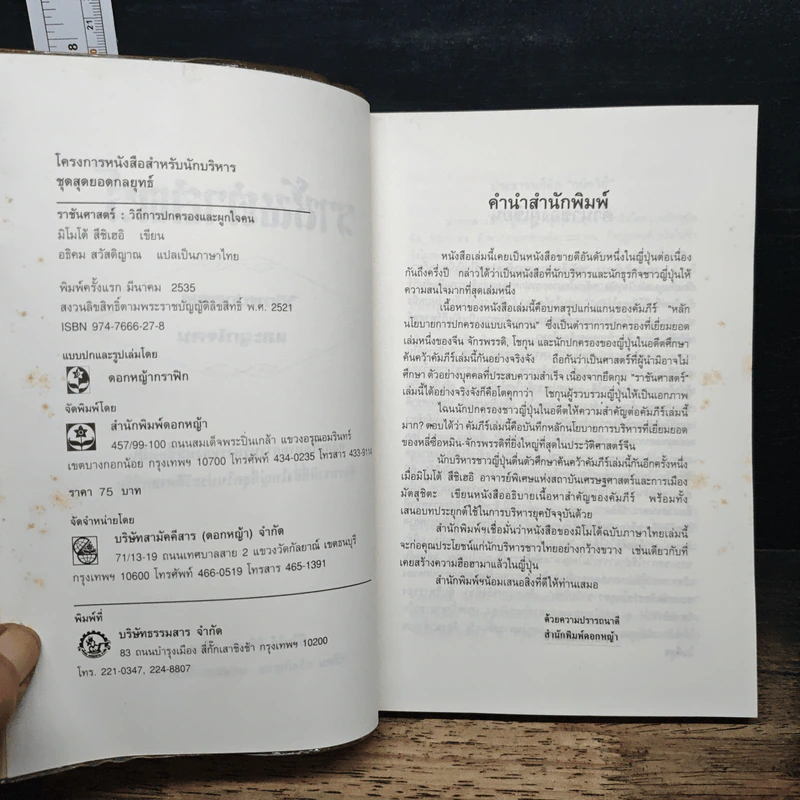 8
21
โครงการหนังสือสำหรับนักบริหาร
ชุดสุดยอดกลยุทธ์
ราชันศาสตร์ : วิถีการปกครองและผูกใจคน
มิโมโต้ สึชิเฮอิ เขียน
อธิคม สวัสดิญาณ แปลเป็นภาษาไทย
พิมพ์ครั้งแรก มีนาคม 2535
สงวนลิขสิทธิ์ตามพระราชบัญญัติลิขสิทธิ์ พ.ศ. 2521
ISBN 974-7666-27-8
แบบปกและรูปเล่มโดย
ดอกหญ้ากราฟิก
จัดพิมพ์โดย
สำนักพิมพ์ดอกหญ้า
457/99-100 ถนนสมเด็จพระปิ่นเกล้า แขวงอรุณอมรินทร์
เขตบางกอกน้อย กรุงเทพฯ 10700 โทรศัพท์ 434-0235 โทรสาร 433-9114
ราคา 75 บาท
จัดจำหน่ายโดย
บริษัทสามัคคีสาร (ดอกหญ้า) จำกัด
71/13-19 ถนนเทศบาลสาย 2 แขวงวัดกัลยาณ์ เขตธนบุรี
กรุงเทพฯ 10600 โทรศัพท์ 466-0519 โทรสาร 465-1391
พิมพ์ที่
บริษัทธรรมสาร จำกัด
83 ถนนบำรุงเมือง สี่กั๊กเสาชิงช้า กรุงเทพฯ 10200
โทร. 221-0347, 224-8807
คำนำสำนักพิมพ์
หนังสือเล่มนี้เคยเป็นหนังสือขายดีอันดับหนึ่งในญี่ปุ่นต่อเนื่อง
กันถึงครึ่งปี กล่าวได้ว่าเป็นหนังสือที่นักบริหารและนักธุรกิจชาวญี่ปุ่นให้
ความสนใจมากที่สุดเล่มหนึ่ง
เนื้อหาของหนังสือเล่มนี้คือบทสรุปแก่นแกนของคัมภีร์ "หลัก
นโยบายการปกครองแบบเจินกวน" ซึ่งเป็นตำราการปกครองที่เยี่ยมยอด
เล่มหนึ่งของจีน จักรพรรดิ, โชกุน และนักปกครองของญี่ปุ่นในอดีตศึกษา
ค้นคว้าคัมภีร์เล่มนี้กันอย่างจริงจัง ถือกันว่าเป็นศาสตร์ที่ผู้นำมิอาจไม่
ศึกษา ตัวอย่างบุคคลที่ประสบความสำเร็จ เนื่องจากยึดกุม "ราชันศาสตร์"
เล่มนี้ได้อย่างจริงจังก็คือโตคุกาว่า โชกุนผู้รวบรวมญี่ปุ่นให้เป็นเอกภาพ
ไฉนนักปกครองชาวญี่ปุ่นในอดีตให้ความสำคัญต่อคัมภีร์เล่มนี้
มาก? ตอบได้ว่า คัมภีร์เล่มนี้คือบันทึกหลักนโยบายการบริหารที่เยี่ยมยอด
ของหลี่ซื่อหมิน-จักรพรรดิที่ยิ่งใหญ่ที่สุดในประวัติศาสตร์จีน
นักบริหารชาวญี่ปุ่นตื่นตัวศึกษาค้นคว้าคัมภีร์เล่มนี้กันอีกครั้งหนึ่ง
เมื่อมิโมโต้ สึชิเฮอิ อาจารย์พิเศษแห่งสถาบันเศรษฐศาสตร์และการเมือง
มัตสุชิตะ เขียนหนังสืออธิบายเนื้อหาสำคัญของคัมภีร์ พร้อมทั้ง
เสนอบทประยุกต์ใช้ในการบริหารยุคปัจจุบันด้วย
สำนักพิมพ์ฯเชื่อมั่นว่าหนังสือของมิโมโต้ฉบับภาษาไทยเล่มนี้
จะก่อคุณประโยชน์แก่นักบริหารชาวไทยอย่างกว้างขวาง เช่นเดียวกับที่
เคยสร้างความฮือฮามาแล้วในญี่ปุ่น
สำนักพิมพ์ฯน้อมเสนอสิ่งที่ดีให้ท่านเสมอ
ด้วยความปรารถนาดี
สำนักพิมพ์ดอกหญ้า